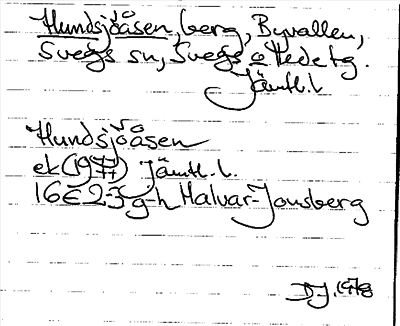 Hundsjöåsen, berg, Byvallen,
Svegs sn, Svegs o Hede tg.
Jämtl. l
Hundsjöåsen
ek (1977) Jämtl. l.
16E 2-3 g-h Malvar-Jonsberg
DJ. 1978